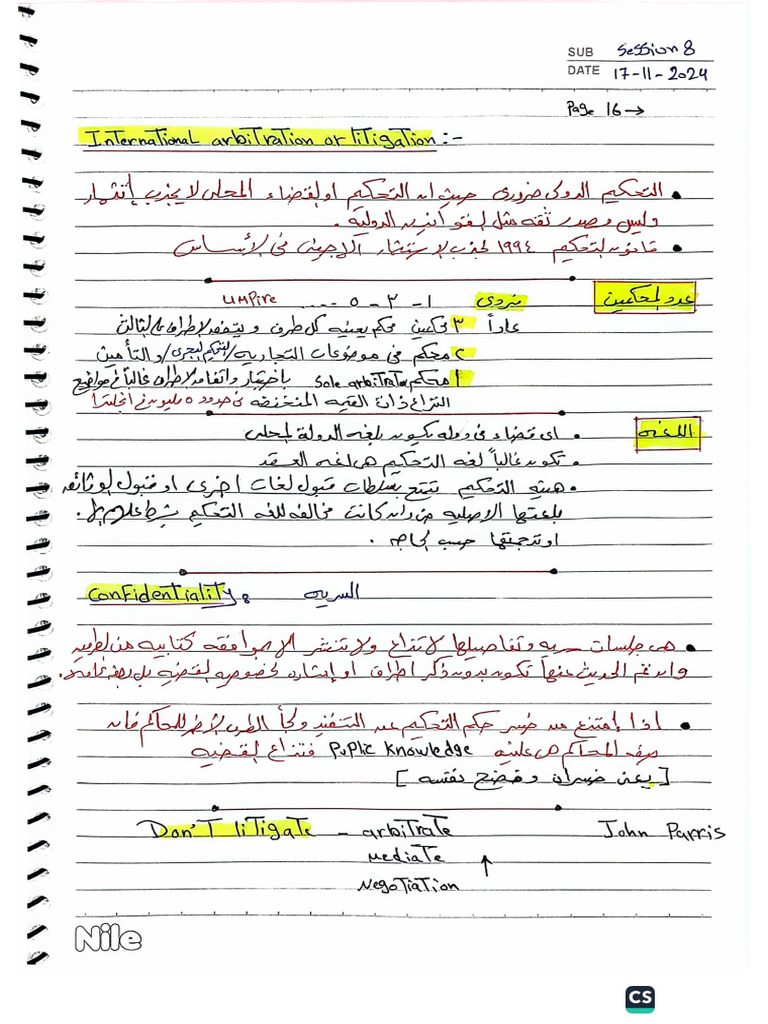 SUB Session 8
DATE 17-11-2024
Page 16 →
International arbitration or litigation :-
• التحكيم الدولى ضرورى حيث ان التحكيم او القضاء المحلى لا يجذب إستثمار
وليس مصدر ثقه مثل القوانين الدولية .
• قانون التحكيم ١٩٩٤ لجذب الاستثمار الاجنبى فى الأساس
عدد المحكمين فردى ١ - ٣ - ٥ .... umpire
عادةً ٣ محكمين محكم يعينه كل طرف و يتفق الاطراف على الثالث
٢ محكم فى موضوعات التجارية / التحكيم البحرى / والتأمين
١ محكم Sole arbitrator باختيار واتفاق الاطراف غالباً فى مواضيع
النزاع ذات القيمه المنخفضه فى حدود ٥ مليون فى انجلترا
اللغه • اى قضاء فى دوله تكون بلغه الدولة المحلى
• تكون غالباً لغه التحكيم هى لغه العقد
• هيئه التحكيم تتمتع بسلطات قبول لغات اخرى او قبول الوثائق
بلغتها الاصليه وان كانت مخالفه للغه التحكيم شرط
او ترجمتها حسب الحاجه .
Confidentiality : السريه
• هى جلسات سريه وتفاصيلها لا تذاع ولا تنشر الا بموافقه كتابيه من الطرفين
وان تم الحديث عنها تكون بدون ذكر اطراف او إشاره لخصوصيه القضيه بل بصفه عامة .
• اذا إمتنع من خسر حكم التحكيم عن التنفيذ ولجأ الطرف الأخر للمحاكم فان
هذه المحاكم هى علنيه Puplic Knowledge فتذاع القضيه
[ يعنى خسران و فضح نفسه ]
Don't litigate - arbitrate John Parris
mediate ↑
Negotiation
Nile
CS